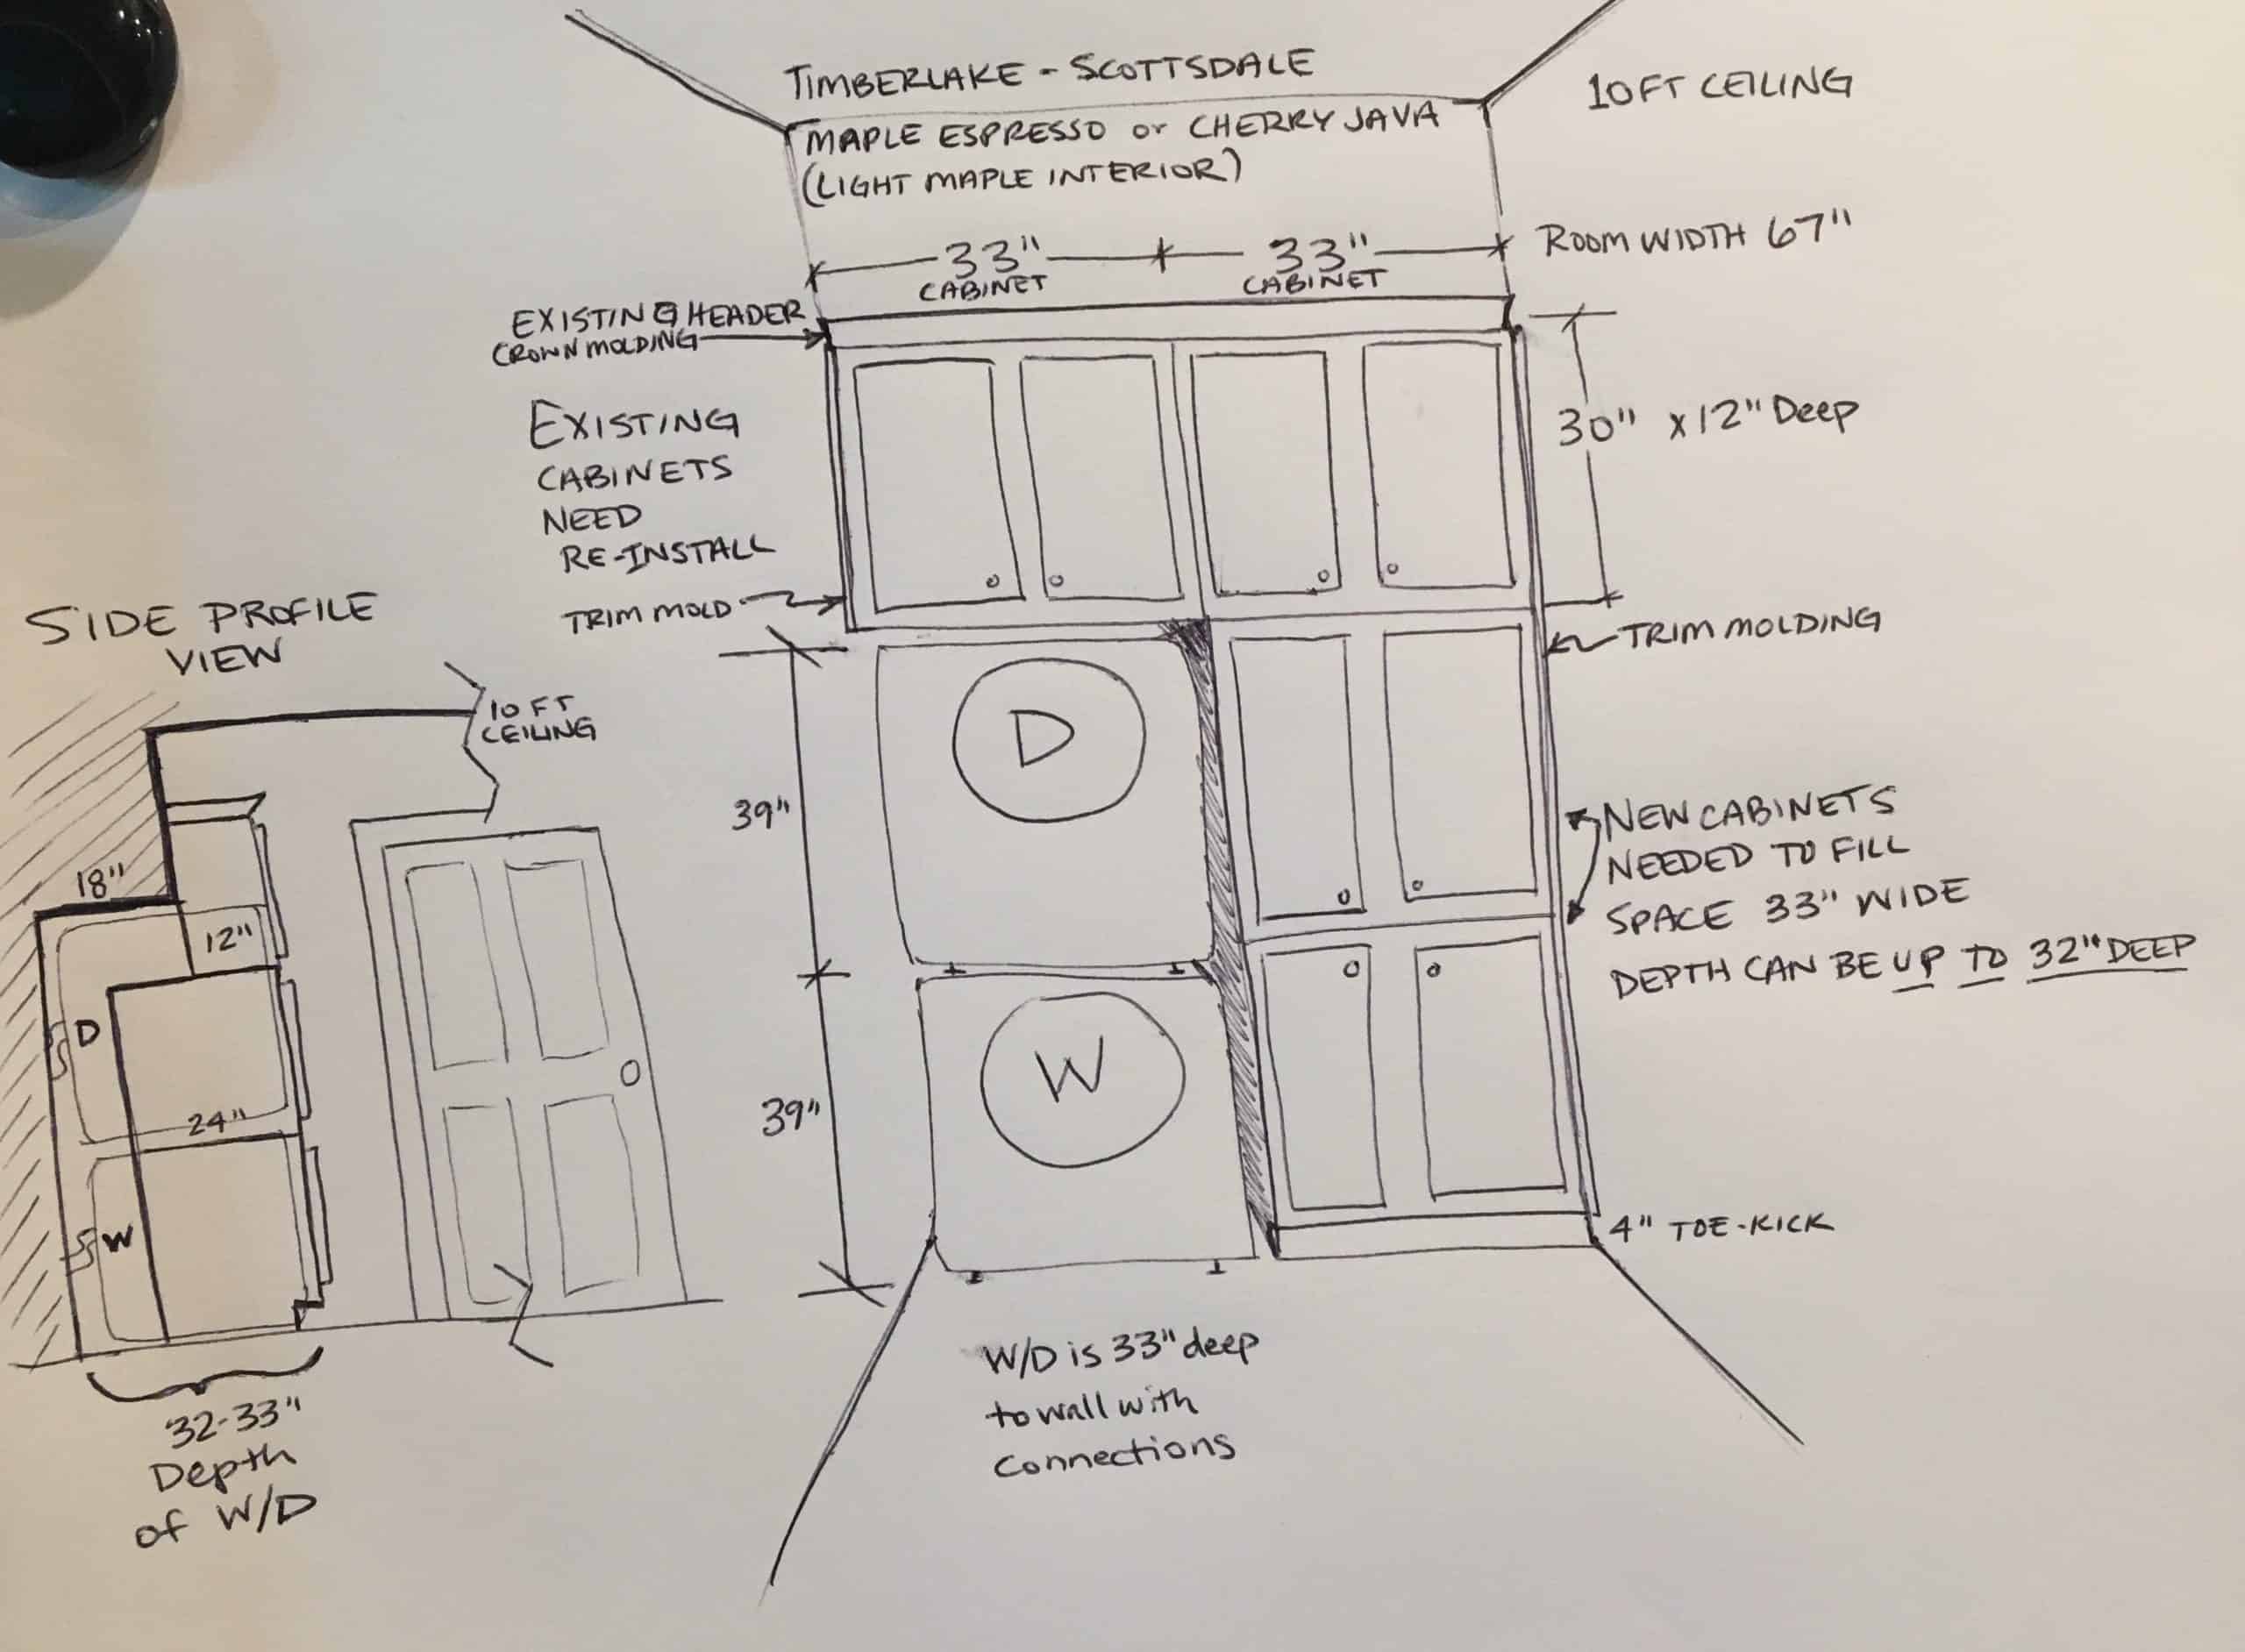 TIMBERLAKE - SCOTTSDALE
MAPLE ESPRESSO or CHERRY JAVA
(LIGHT MAPLE INTERIOR)
10FT CEILING
33" 33"
CABINET CABINET
ROOM WIDTH 67"
EXISTING HEADER
CROWN MOLDING
EXISTING
CABINETS
NEED
RE-INSTALL
TRIM MOLD
30" x 12" Deep
TRIM MOLDING
SIDE PROFILE
VIEW
10 FT
CEILING
18"
12"
D
24"
W
32-33"
Depth
of W/D
39"
D
39"
W
NEW CABINETS
NEEDED TO FILL
SPACE 33" WIDE
DEPTH CAN BE UP TO 32" DEEP
4" TOE-KICK
W/D is 33" deep
to wall with
connections